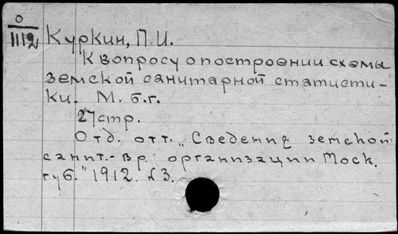 0
1112
Куркин, П.И.
К вопросу о построении схемы
земской санитарной статисти-
ки. М. б.г.
27 стр.
Отд. отт. „Сведения земской
санит.-вр. организации Моск.
губ." 1912. №3.